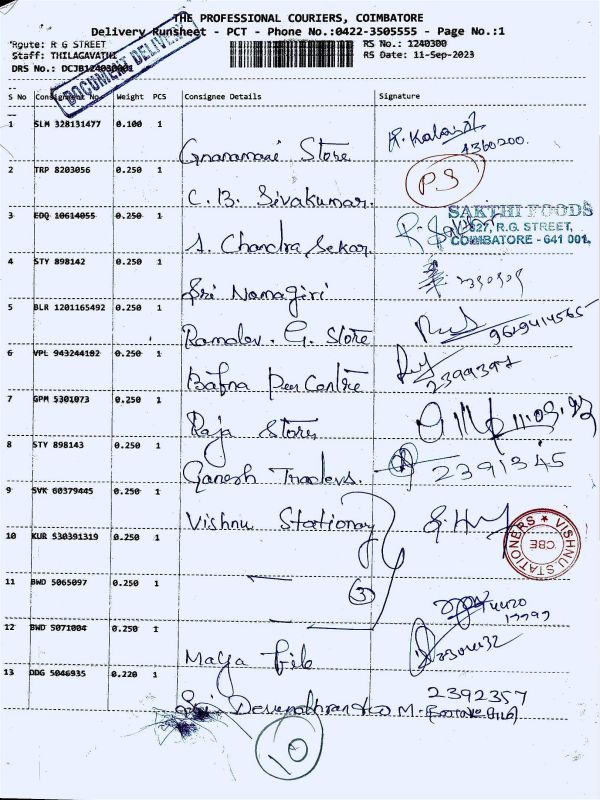 THE PROFESSIONAL COURIERS, COIMBATORE
Delivery Runsheet - PCT - Phone No.:0422-3505555 - Page No.:1
Route: R G STREET
RS No.: 1240300
Staff: THILAGAVATHI
RS Date: 11-Sep-2023
DRS No.:
DOCUMENT DELIVERY
S No Consignment No. Weight PCS Consignee Details Signature
1 SLM 328131477 0.100 1
Gnanamani Store
2 TRP 8203056 0.250 1
C. B. Sivakumar.
PS
3 EDQ 10614055 0.250 1
A. Chandra Sekar.
SAKTHI FOODS
827, R.G. STREET,
COIMBATORE - 641 001.
4 STY 898142 0.250 1
Sri Namagiri
5 BLR 1201165492 0.250 1
G. Store
6 VPL 943244102 0.250 1
Bafna Pen Centre
2399397
7 GPM 5301073 0.250 1
Raja Stores
8 STY 898143 0.250 1
Ganesh Traders.
2391345
9 SVK 60379445 0.250 1
Vishnu Stationary
VISHNU STATIONERS
CBE
10 KUR 530391319 0.250 1
11 BWD 5065097 0.250 1
3
12 BWD 5071004 0.250 1
Maya File
13 DDG 5046935 0.220 1
2392357
10